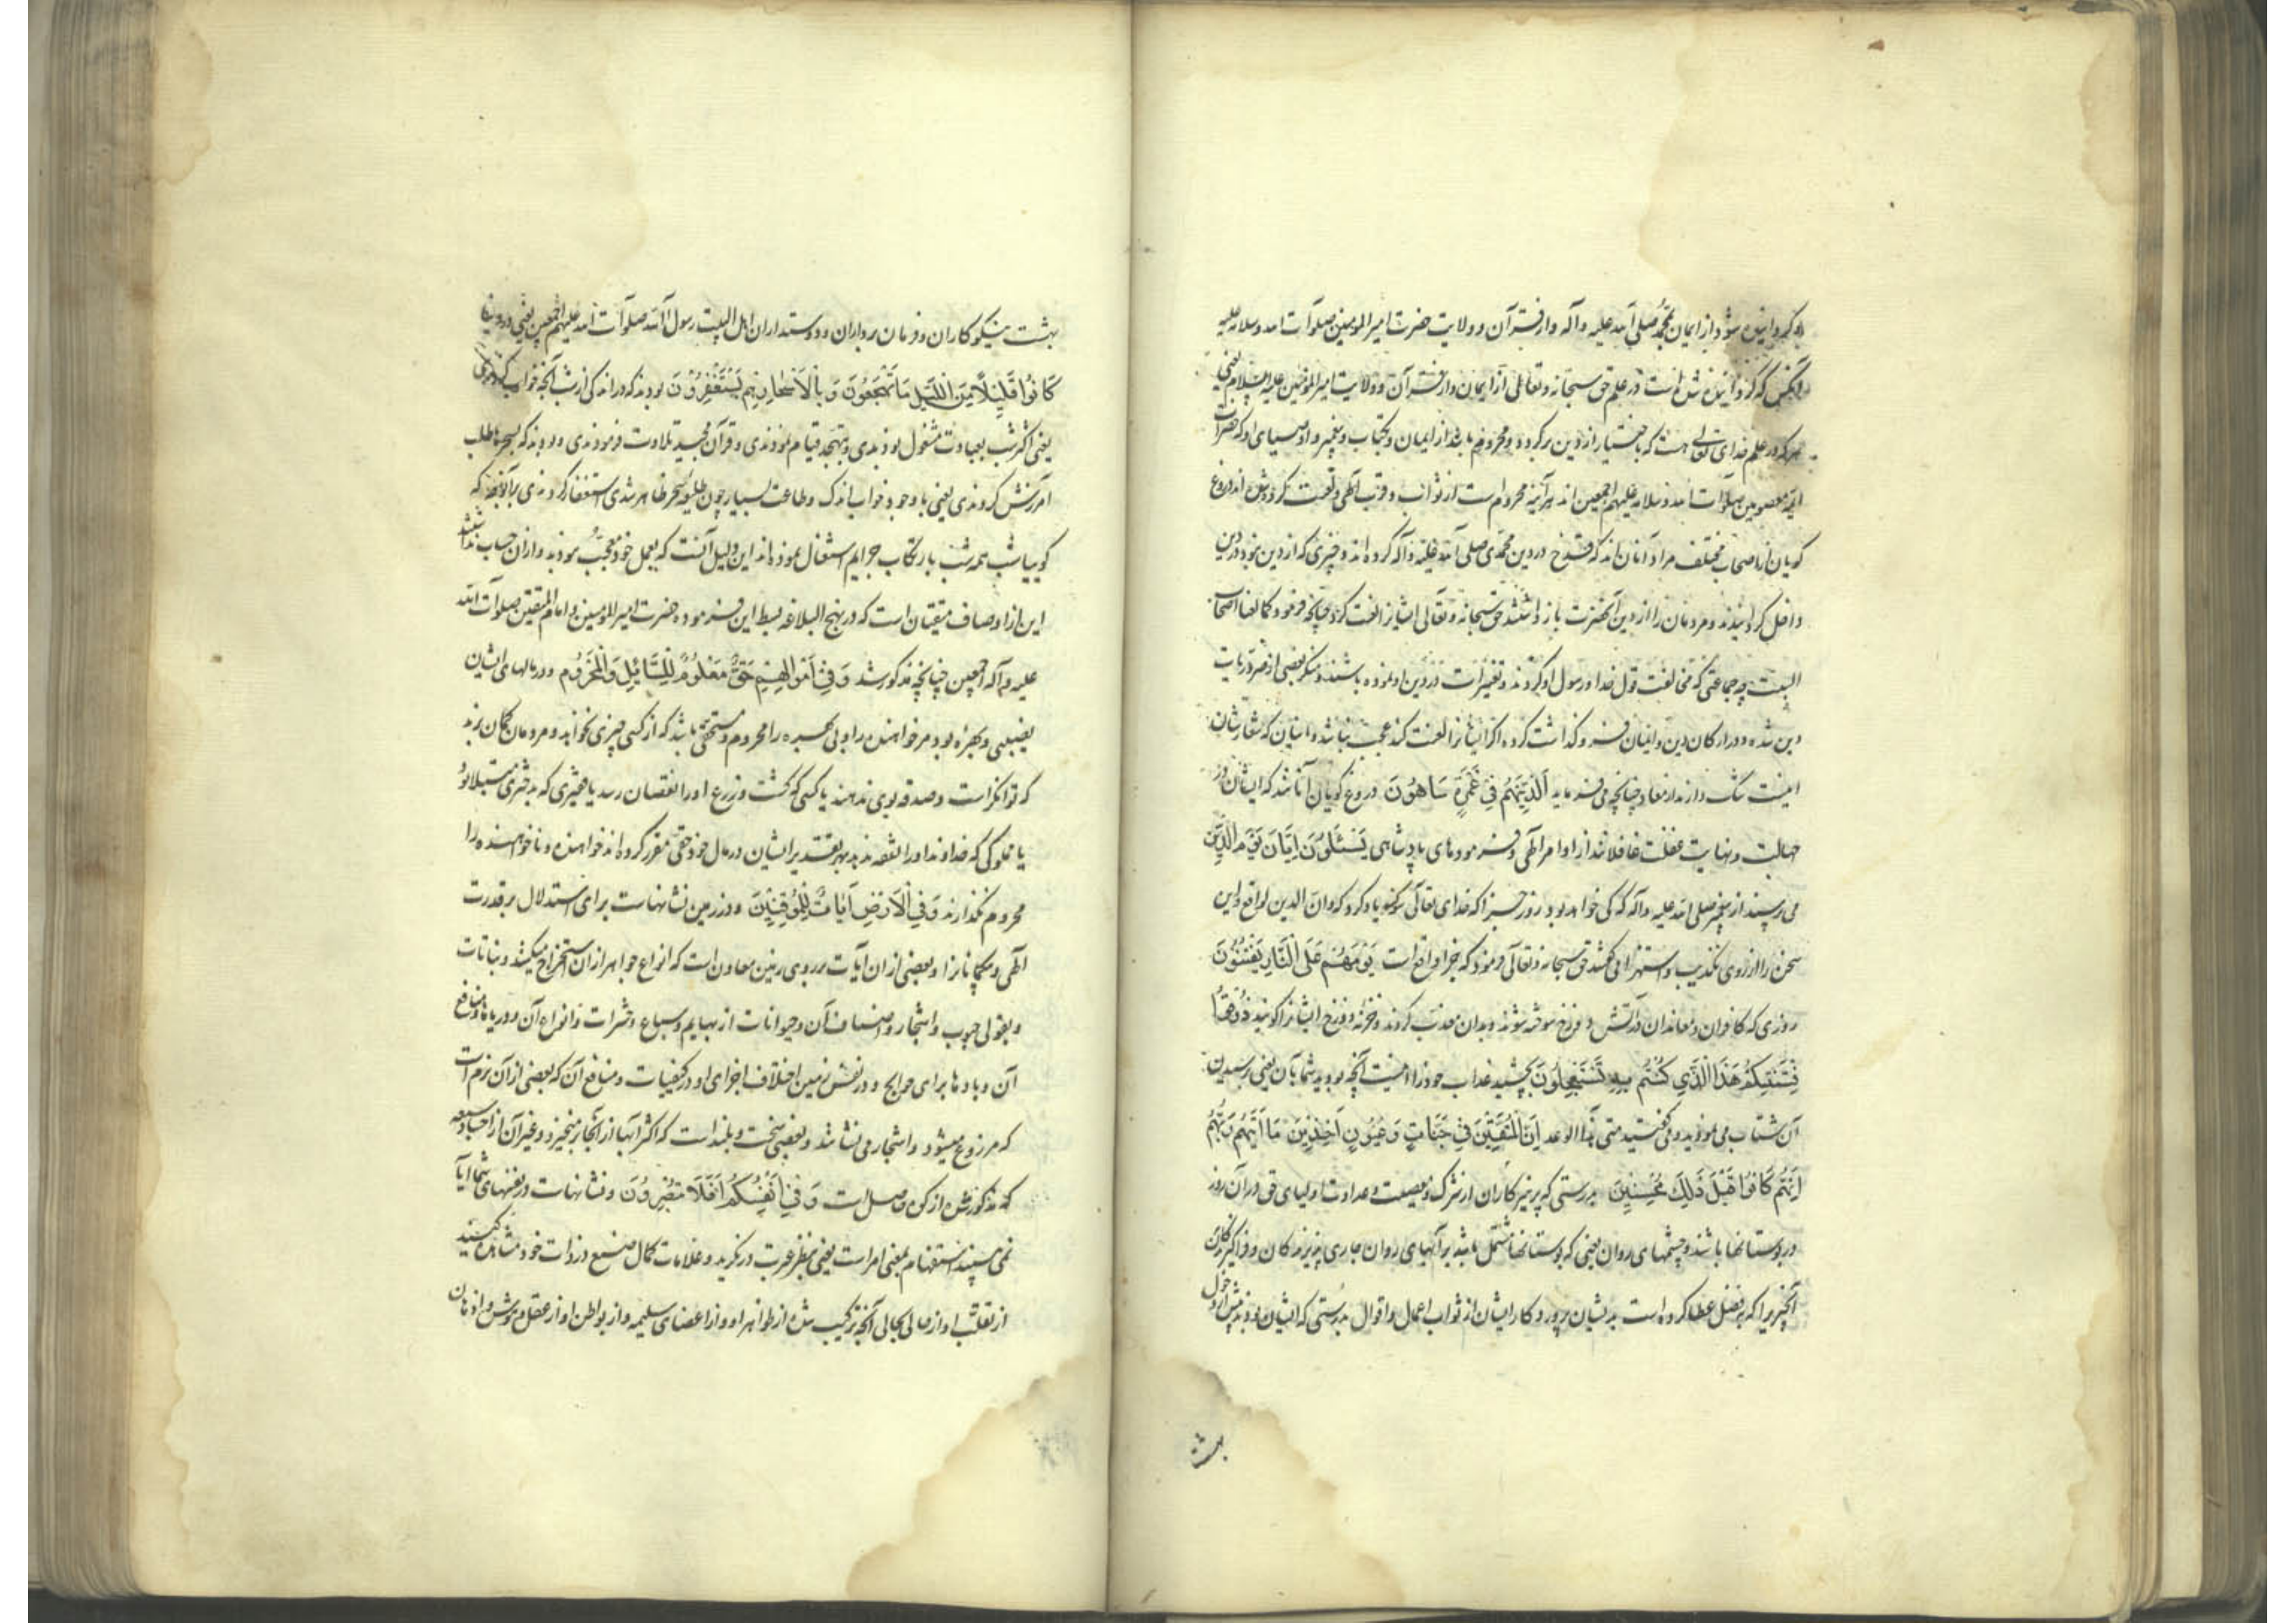 کردانیده شود از ایمان بمحمد صلی الله علیه وآله واز قرآن و ولایت حضرت امیر المومنین صلوات الله وسلامه علیه
کردانیده شده است در علم حق سبحانه وتعالی از ایمان واز قرآن و ولایت امیر المومنین علیه السلام یعنی
هر که در علم خدای تعالی هست که باختیار از دین برکردد ومحروم باشد از ایمان وکتاب وپیغمبر واوصیای او که حضرات
ایمه معصومین صلوات الله وسلامه علیهم اجمعین اند هر آینه محروم است از ثواب وقرب الهی ولعنت کرده شده اند دروغ
کویان از اصحاب مختلف مراد آنان اند که قدح در دین محمدی صلی الله علیه وآله کرده اند وچیزی که از دین نبود در دین
داخل کردانیدند ومردمان را از دین آنحضرت باز داشتند حق سبحانه وتعالی ایشانرا لعنت کرد چنانچه فرمود کما لعنا اصحاب
السبت چه جماعتی که مخالفت قول خدا ورسول او کردند وتغییرات در دین او نموده باشند ومنکر بعضی از ضروریات
دین شده ودر ارکان دین وایمان فرو کذاشت کرده اکر ایشانرا لعنت کند عجب نباشد واینان که شعارشان
اینست شک دارند از معاد چنانچه می فرماید اَلَّذِینَ هُمْ فِی غَمْرَةٍ سَاهُونَ دروغ کویان آنانند که ایشان در
جهالت ونهایت غفلت غافلانند از اوامر الهی وفرمودهای پادشاهی یَسْئَلُونَ اَیَّانَ یَوْمُ الدِّینِ
می پرسند از پیغمبر صلی الله علیه وآله که کی خواهد بود روز جزا که خدای تعالی سوکند یاد کرد که وان الدین لواقع واین
سخن را از روی تکذیب واستهزا می کفتند حق سبحانه وتعالی فرمود که جزا واقع است یَوْمَ هُمْ عَلَی النَّارِ یُفْتَنُونَ
روزی که کافران ومعاندان در آتش دوزخ سوخته شوند وبدان معذب کردند وخزنه دوزخ ایشانرا کویند ذُوقُوا
فِتْنَتَکُمْ هَذَا الَّذِی کُنْتُمْ بِهِ تَسْتَعْجِلُونَ بچشید عذاب خود را اینست آنچه بودید شما بآن یعنی برسیدن
آن شتاب می نمودید ومی کفتید متی هذا الوعد اِنَّ الْمُتَّقِینَ فِی جَنَّاتٍ وَ عُیُونٍ اٰخِذِینَ مَا اٰتٰیهُمْ رَبُّهُمْ
اِنَّهُمْ کَانُوا قَبْلَ ذَلِکَ مُحْسِنِینَ بدرستی که پرهیز کاران از شرک ومعصیت وعداوت اولیای حق در آن روز
در بوستانها باشند وچشمهای روان یعنی که بوستانها مشتمل باشد بر آبهای روان جاری پرهیزندکان وفرا کیرندکان
آنچیزیرا که بفضل عطا کرده است بدیشان پروردکار ایشان از ثواب اعمال واقوال بدرستی که ایشان بودند پیش از دخول
بهشت
بهشت نیکوکاران وفرمان برداران ودوستداران اهل البیت رسول الله صلوات الله علیهم اجمعین یعنی در دنیا
کَانُوا قَلِیلًا مِنَ اللَّیْلِ مَا یَهْجَعُونَ وَ بِالْاَسْحَارِ هُمْ یَسْتَغْفِرُونَ بودند که در اندکی از شب آنچه خواب کردندی
یعنی اکثر شب بعبادت مشغول بودندی وبتهجد قیام نمودندی وقرآن مجید تلاوت فرمودندی وبودند که بسحرها طلب
آمرزش کردندی یعنی با وجود خواب اندک وطاعت بسیار چون طلیعه سحر ظاهر شدی استغفار کردندی بر آنوجه که
کوییا شب همه شب بارتکاب جرایم اشتغال نموده اند این دلیل آنست که بعمل خود معجب نبودند واز آن حساب نداشتند
این از اوصاف متقیان است که در نهج البلاغه بسط این فرموده حضرت امیر المومنین وامام المتقین صلوات الله
علیه وآله اجمعین چنانچه مذکور شد وَ فِی اَمْوَالِهِمْ حَقٌّ مَعْلُومٌ لِلسَّائِلِ وَالْمَحْرُومِ ودر مالهای ایشان
نصیبی وبهره بود مر خواهنده را وبی بهره را محروم مستحقی باشد که از کسی چیزی نخواهد ومردمان کمان برند
که توانکر است وصدقه بوی ندهند یا کسی که کشت وزرع او را نقصان رسد یا فقیری که بدختری مبتلا بود
یا مملوکی که خداوند او را نفقه ندهد بهر تقدیر ایشان در مال خود حقی مقرر کرده اند خواهنده ونا خواهنده را
محروم نکذارند وَ فِی الْاَرْضِ اٰیَاتٌ لِلْمُوقِنِینَ ودر زمین نشانهاست برای استدلال بر قدرت
الهی مر بی کمانانرا وبعضی از ان آیات بر روی زمین معادن است که انواع جواهر از ان استخراج میکنند ونباتات
وبقول وحبوب واشجار واصناف آن وحیوانات از بهایم وسباع وحشرات وانواع آن ودریاها ومنافع
آن وبادها برای حوایج ودر نفس زمین اختلاف اجزای او در کیفیات ومنافع آن که بعضی از آن نرم است
که مزروع میشود واشجار می نشانند وبعضی سخت وبلند است که اکثر آبها از آنجا بر میخیزد وغیر آن از اجناد سبعه
که مذکور شده از کوه حاصل است وَ فِی اَنْفُسِکُمْ اَفَلَا تُبْصِرُونَ ونشانهاست در نفسهای شما آیا
نمی بینید استفهام بمعنی امر است یعنی بنظر عبرت در نکرید وعلامات کمال صنع در ذات خود مشاهده کنید
از تقلب او از حالی بحالی آنچه ترکیب شده از ظواهر او واز اعضای سلیمه واز بواطن او از عقل وهوش واذهان